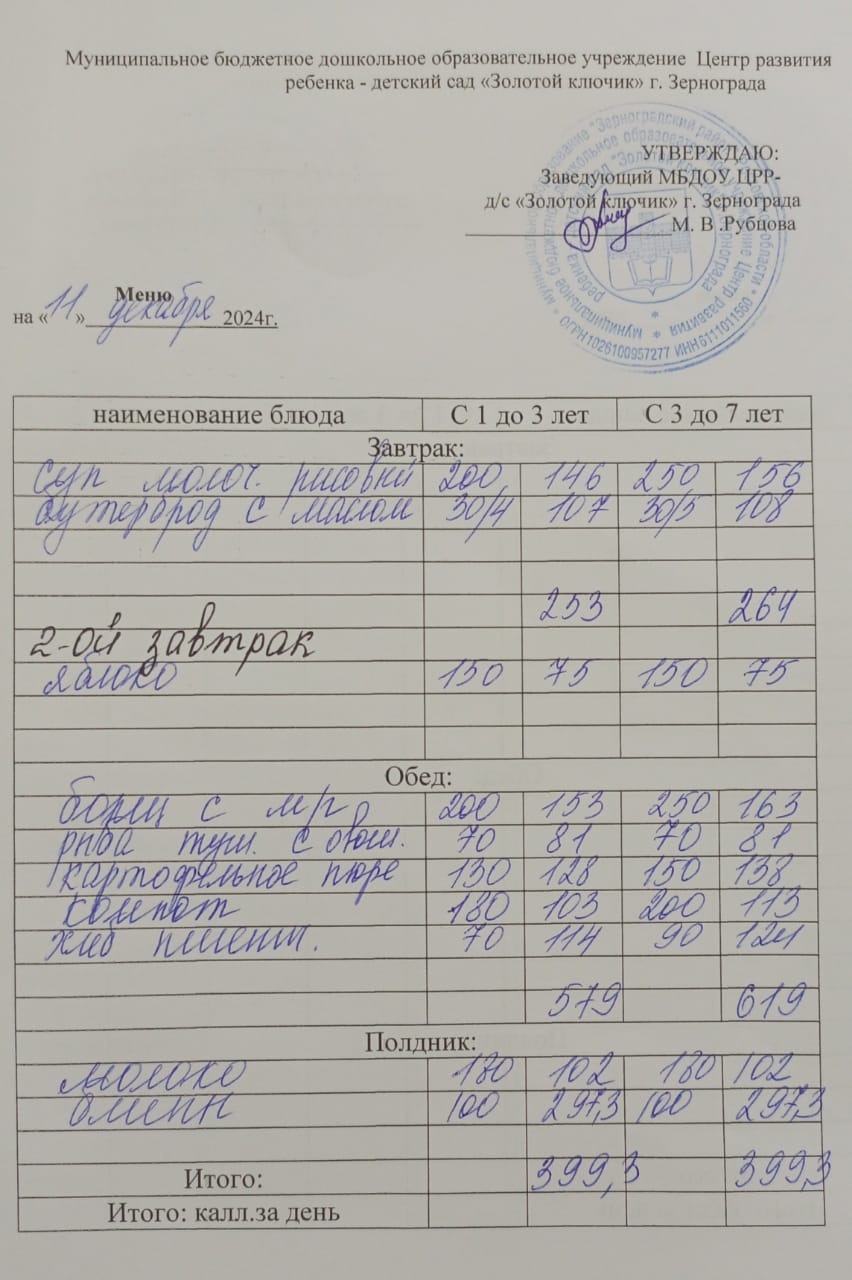 Муниципальное бюджетное дошкольное образовательное учреждение Центр развития
ребенка - детский сад «Золотой ключик» г. Зернограда
УТВЕРЖДАЮ:
Заведующий МБДОУ ЦРР-
д/с «Золотой ключик» г. Зернограда
М. В .Рубцова
ОГРН 1026100957277 ИНН 6111011560
Меню
на «11» декабря 2024г.
наименование блюда С 1 до 3 лет С 3 до 7 лет
Завтрак:
Суп молоч. рисовый 200 146 250 156
Бутерброд с маслом 30/4 107 30/5 108
253 264
2-ой завтрак
яблоко 150 75 150 75
Обед:
борщ с м/р 200 153 250 163
рыба туш. с овощ. 70 81 70 81
картофельное пюре 130 128 150 138
компот 180 103 200 113
хлеб пшенич. 70 114 90 124
579 619
Полдник:
молоко 180 102 180 102
блины 100 297,3 100 297,3
Итого: 399,3 399,3
Итого: калл.за день